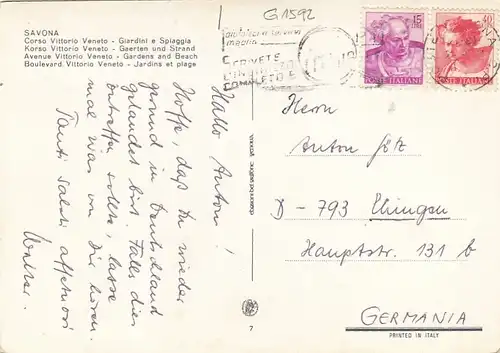 G1592
SAVONA
Corso Vittorio Veneto - Giardini e Spiaggia
Korso Vittorio Veneto - Gaerten und Strand
Avenue Vittorio Veneto - Gardens and Beach
Boulevard Vittorio Veneto - Jardins et plage
SCRIVETE
L'INDIRIZZO
COMPLETO
15
POSTE ITALIANE
40
POSTE ITALIANE
Hallo Anton!
Hoffe, daß Du wieder
gesund in Deutschland
gelandet bist. Falls dies
zutreffen sollte, lasse
mal was von Dir hören.
Tanti Saluti affettuosi
Walter.
Herrn
Anton Götz
D-793 Ehingen
Hauptstr. 131 b
GERMANIA
7
PRINTED IN ITALY